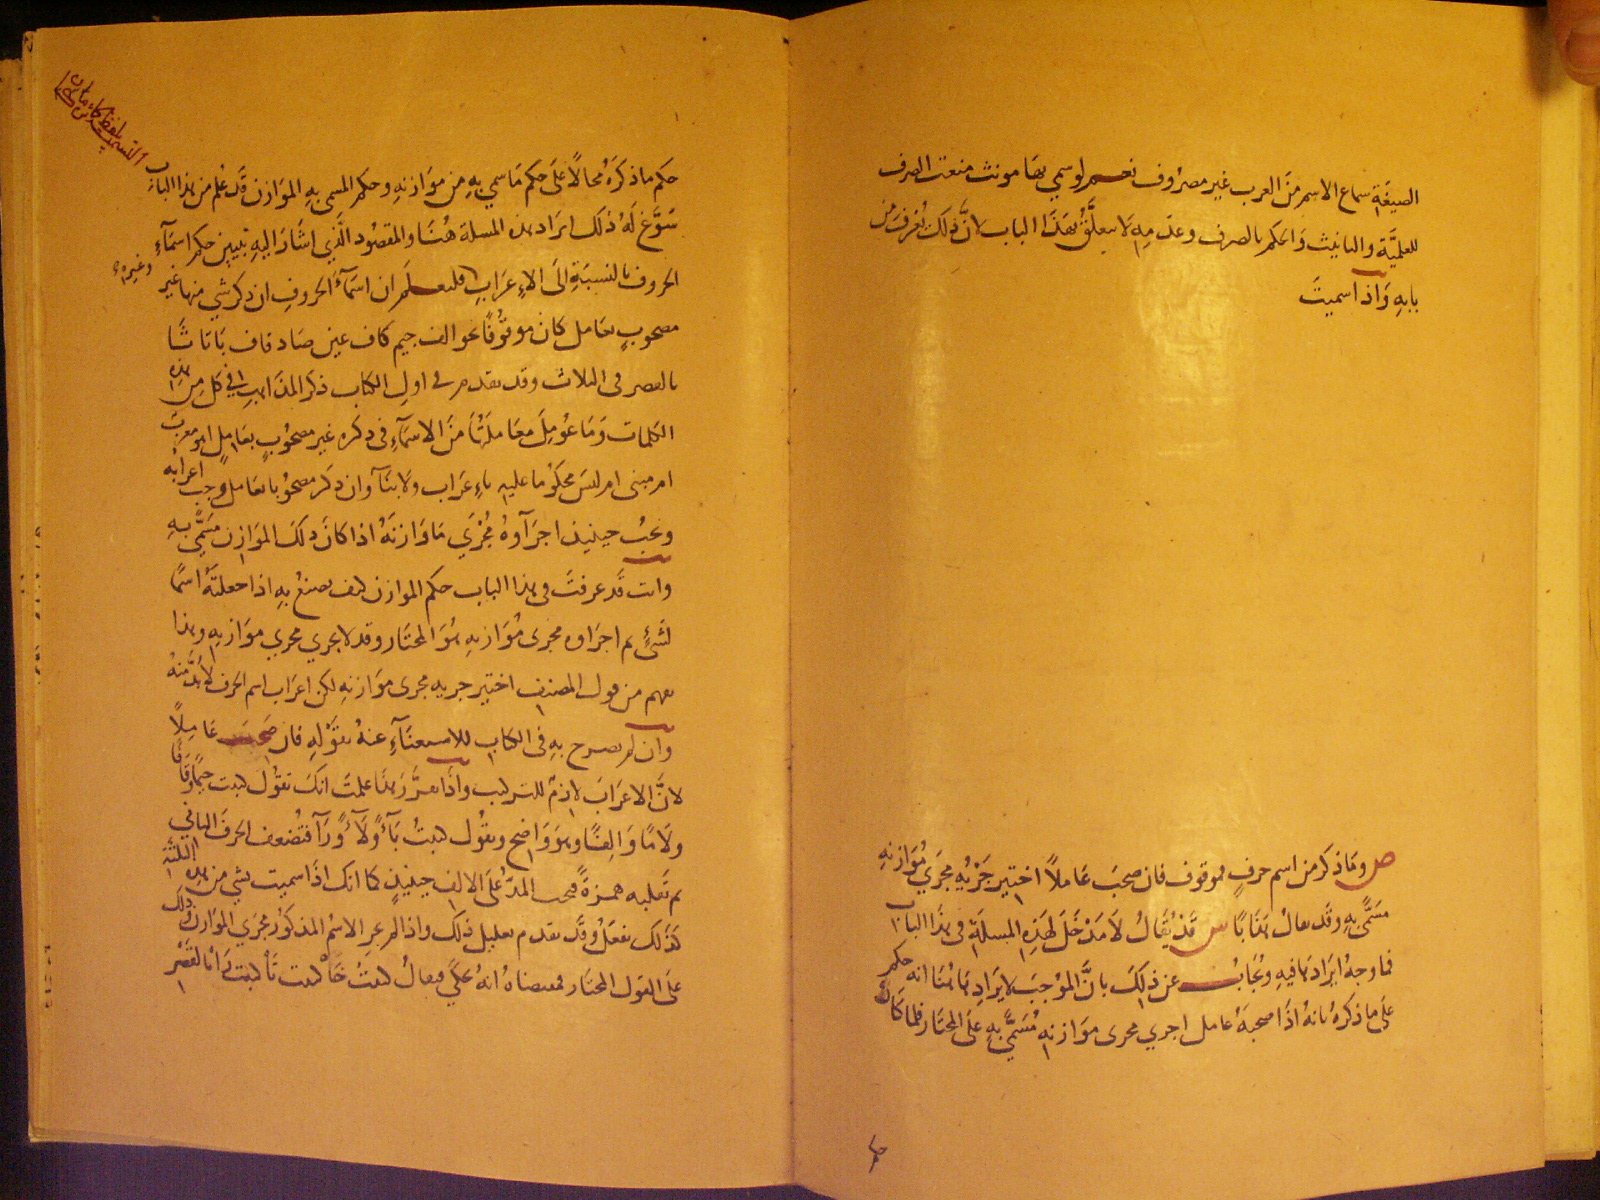 الصيغة سماع الاسم من العرب غير مصروف نعم لو سمي بها مونث منعت الصرف
للعلمية والتانيث والحكم بالصرف وعدمه لا يتعلق بهذا الباب لان ذلك يعرف من
بابه واذا سميت
ص وما ذكر من اسم حرف فموقوف فان صحب عاملا اختير جريه مجرى موازنه
مسمى به وقد يقال هذا با س قد يقال لا مدخل لهذه المسلة في هذا الباب
فما وجه ايرادها فيه ويجاب عن ذلك بان الموجب لايرادها هنا انه حكم
على ما ذكره بانه اذا صحبه عامل اجري مجرى موازنه مسمى به على المختار فلما كان
حكم ما ذكره محالا على حكم ما سمي به من موازنه وحكم المسمى به الموازن قد علم من هذا الباب
سوغ له ذلك ايراد هذه المسلة هنا والمقصود الذي اشار اليه تبيين حكم اسماء
الحروف بالنسبة الى الاعراب وغيره فليعلم ان اسماء الحروف ان ذكر شي منها غير
مصحوب بعامل كان موقوفا نحو الف جيم كاف عين صاد قاف با تا ثا
بالقصر في الثلاث وقد تقدم في اول الكتاب ذكر المذاهب في كل من هذه
الكلمات وما عومل معاملتها من الاسماء في ذكره غير مصحوب بعامل اهو معرب
ام مبني ام ليس محكوما عليه باعراب ولا بناء وان ذكر مصحوبا بعامل وجب اعرابه
ويجب حينيذ اجراوه مجرى ما وازنه اذا كان ذلك الموازن مسمى به
وانت قد عرفت في هذا الباب حكم الموازن كيف يصنع به اذا جعلته اسما
لشئ ثم اجراوه مجرى موازنه هو المختار وقد لا يجري مجري موازنه وهذا
يفهم من قول المصنف اختير جريه مجرى موازنه لكن اعراب اسم الحرف لا بد منه
وان لم يصرح به في الكتاب للاستغناء عنه بقوله فان صحب عاملا
لان الاعراب لازم للتركيب واذا تقرر هذا علمت انك تقول كتبت جيما وقافا
ولاما والفا وهو واضح وتقول كتبت باء ولاء وراء فتضعف الحرف الثاني
ثم تقلبه همزة فيجب المد على الالف حينيذ كما انك اذا سميت بشي من هذه الثلثة
كذلك تفعل وقد تقدم تعليل ذلك واذا لم يجر الاسم المذكور مجرى الموازن وذلك
على القول المختار فمقتضاه انه يحكى فيقال كتبت خا كتبت تا كتبت ها بالقصر